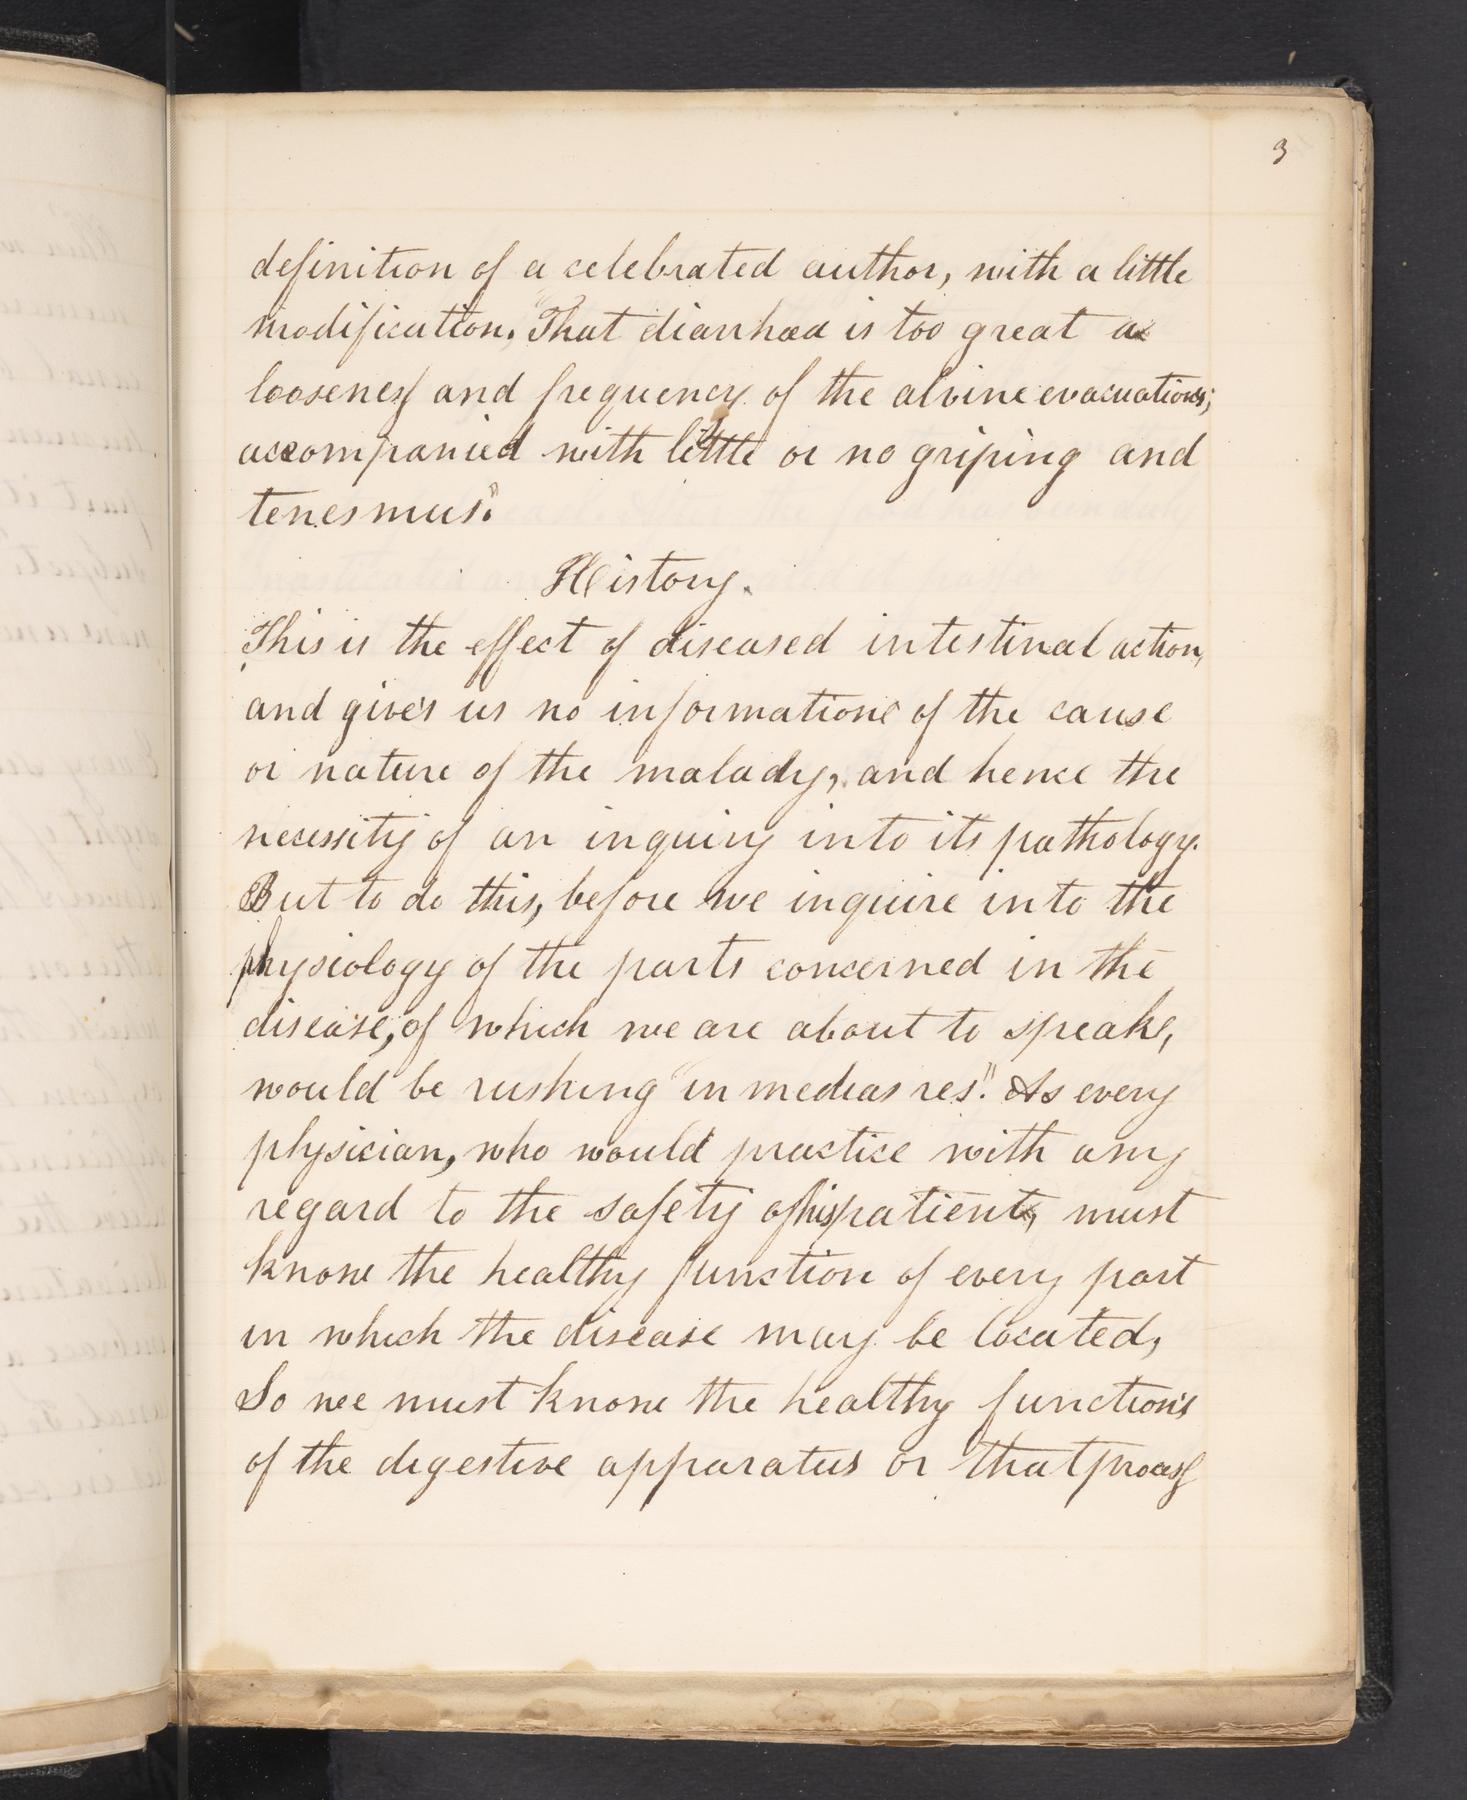 3
definition of a celebrated author, with a little
modification. "That diarrhœa is too great a
looseness and frequency of the alvine evacuations;
accompanied with little or no griping and
tenesmus".
History.
This is the effect of diseased intestinal action,
and gives us no informatione of the cause
or nature of the malady, and hence the
necessity of an inquiry into its pathology.
But to do this, before we inquire into the
physiology of the parts concerned in the
disease, of which we are about to speak,
would be rushing "in medias res". As every
physician, who would practice with any
regard to the safety of his patients, must
know the healthy function of every part
in which the disease may be located,
So we must know the healthy functions
of the digestive apparatus or that process